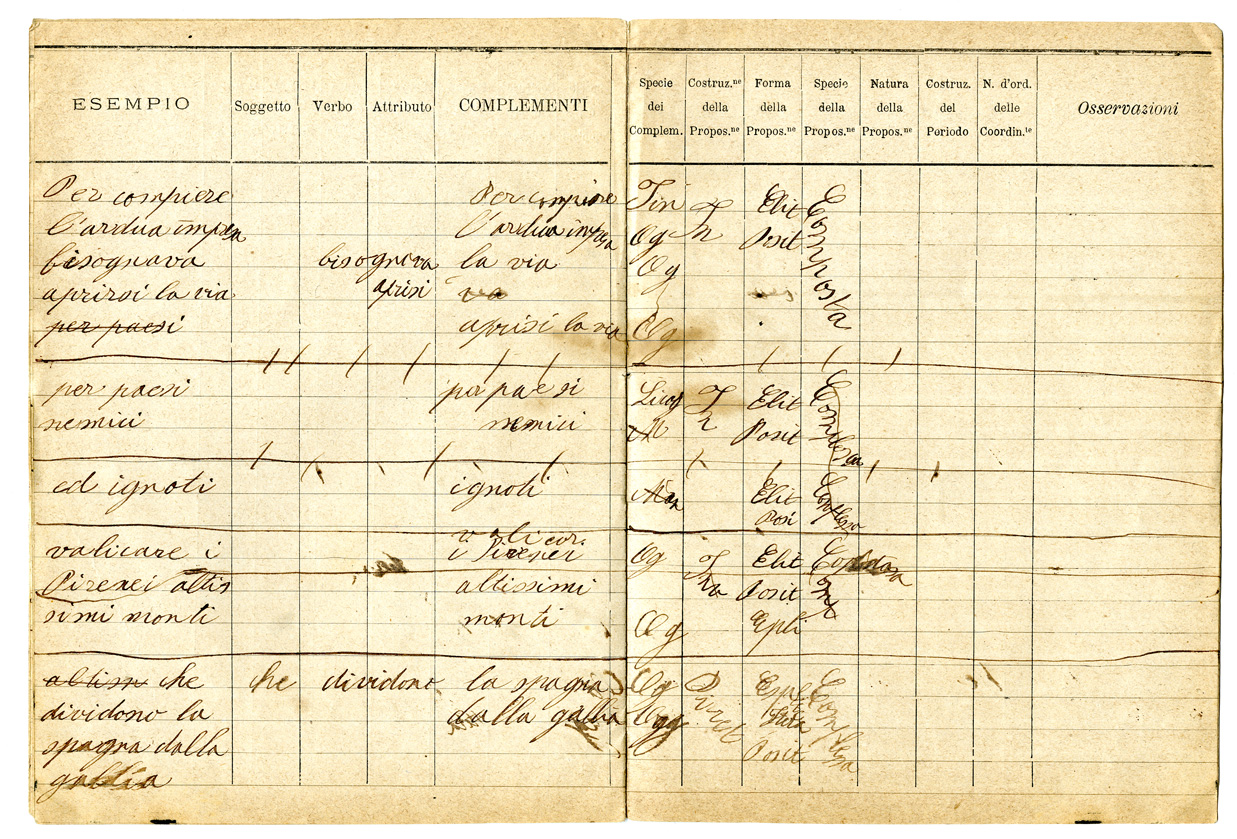 ESEMPIO
Soggetto
Verbo
Attributo
COMPLEMENTI
Specie
dei
Complem.
Costruz.ne
della
Propos.ne
Forma
della
Propos.ne
Specie
della
Propos.ne
Natura
della
Propos.ne
Costruz.
del
Periodo
N. d'ord.
delle
Coordin.te
Osservazioni
Per compiere Per compiere Elit Composta
l'ardua impresa l'ardua impresa Og Posit
bisognava bisognava la via Og
aprirsi la via aprisi
per paesi aprisi la via Og
per paesi per paesi Elit Complessa
nemici nemici Posit
ed ignoti ignoti Elit Complessa
Posi
valicare i i Pirenei Og Elit
Pirenei altis altissimi Posit
simi monti monti Og
altissi che che dividono la spagna Og Diret Complessa
dividono la dalla gallia
spagna dalla Posit
gallia